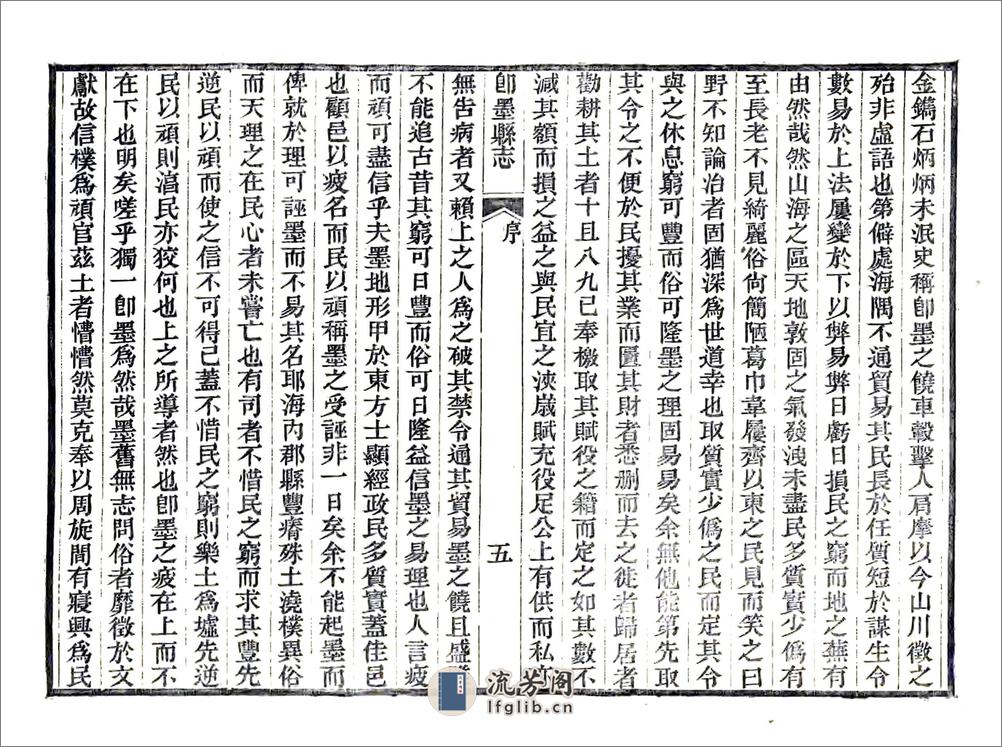 金鐫石炳炳未泯史稱卽墨之饒車轂擊人肩摩以今山川徵之
殆非虛語也第僻處海隅不通貿易其民長於任質短於謀生令
數易於上法屢變於下以弊易弊日虧日損民之窮而地之蕪有
由然哉然山海之區天地敦固之氣發洩未盡民多質實少僞有
至長老不見綺麗俗尙簡陋葛巾韋屨齊以東之民見而笑之曰
野不知論治者固猶深爲世道幸也取質實少僞之民而定其令
與之休息窮可豐而俗可隆墨之理固易易矣余無他能第先取
其令之不便於民擾其業而匱其財者悉刪而去之徙者歸居者
勸耕其土者十且八九已奉檄取其賦役之籍而定之如其數不
減其額而損之益之與民宜之浹歲賦充役足公上有供而私
卽墨縣志
序
五
無吿病者又賴上之人爲之破其禁令通其貿易墨之饒且盛
不能追古昔其窮可日豐而俗可日隆益信墨之易理也人言疲
而頑可盡信乎夫墨地形甲於東方士顯經政民多質實蓋佳邑
也顧邑以疲名而民以頑稱墨之受誣非一日矣余不能起墨而
俾就於理可誣墨而不易其名耶海內郡縣豐瘠殊土澆樸異俗
而天理之在民心者未嘗亡也有司者不惜民之窮而求其豐先
逆民以頑而使之信不可得已蓋不惜民之窮則樂土爲墟先逆
民以頑則湻民亦狡何也上之所導者然也卽墨之疲在上而不
在下也明矣嗟乎獨一卽墨爲然哉墨舊無志問俗者靡徵於文
獻故信樸爲頑官茲土者懵懵然莫克奉以周旋間有寢興爲民
流芳阁
lfglib.cn